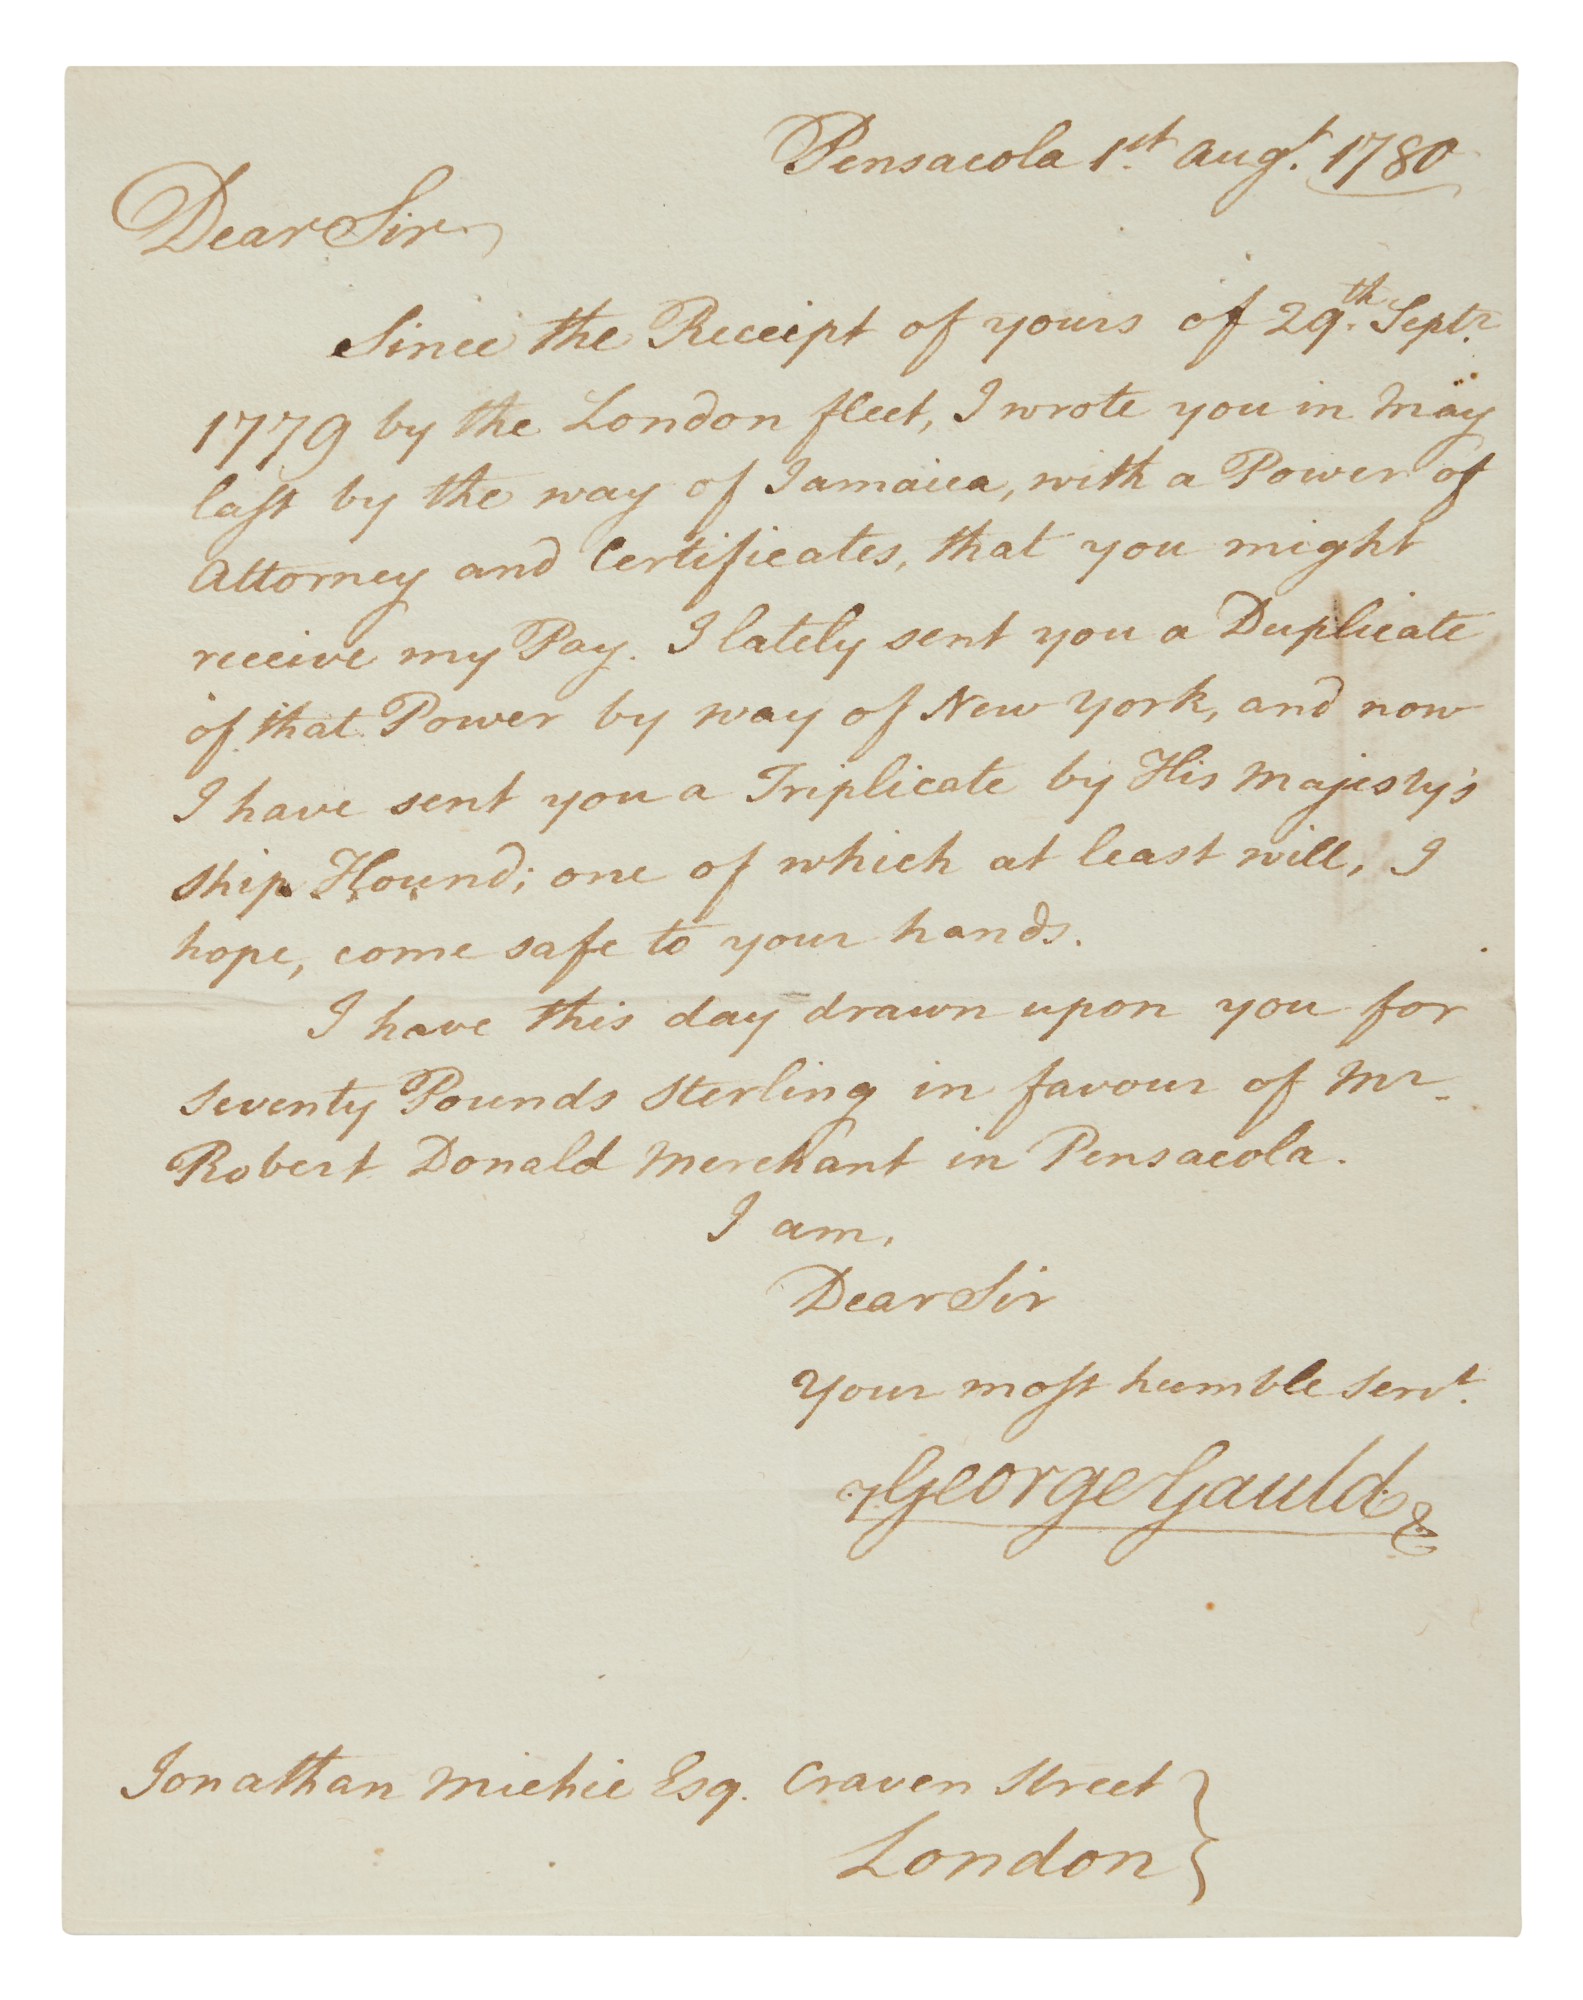 Pensacola 1st. Augt. 1780
Dear Sir
Since the Receipt of yours of 29th. Septr.
1779 by the London fleet, I wrote you in May
laſt by the way of Jamaica, with a Power of
Attorney and Certificates, that you might
receive my Pay. I lately sent you a Duplicate
of that Power by way of New York, and now
I have sent you a Triplicate by His Majesty's
Ship Hound; one of which at least will, I
hope, come safe to your hands.
I have this day drawn upon you for
Seventy Pounds Sterling in favour of Mr.
Robert Donald Merchant in Pensacola.
I am,
Dear Sir
Your moſt humble Servt.
George Gauld
Jonathan Michie Esq. Craven Street
London